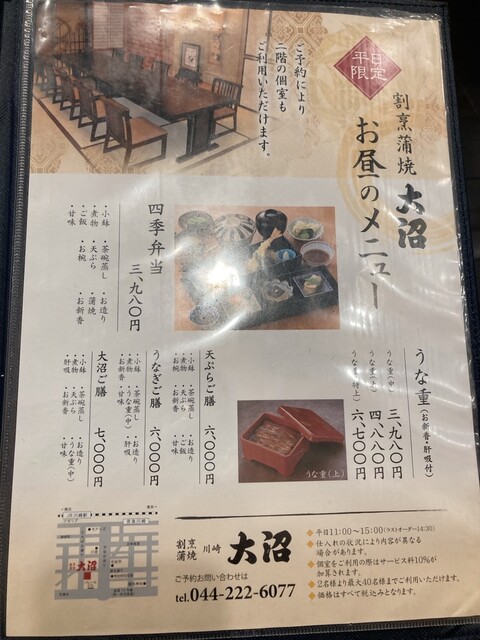 平日
限定
割烹蒲焼 大沼
お昼のメニュー
ご予約により
二階の個室も
ご利用いただけます。
四季弁当
三、九八〇円
・小鉢 ・茶碗蒸し ・お造り
・煮物 ・天ぷら ・蒲焼
・ご飯 ・お椀 ・お新香
・甘味
うな重(お新香・肝吸付)
うな重(中) 三、九八〇円
うな重(上) 四、八八〇円
うな重(特上) 六、七〇〇円
うな重(上)
天ぷらご膳 六、〇〇〇円
・小鉢 ・茶碗蒸し ・お造り
・煮物 ・天ぷら ・ご飯
・お椀 ・お新香 ・甘味
うなぎご膳 六、〇〇〇円
・小鉢 ・茶碗蒸し ・お造り
・煮物 ・うな重(中) ・肝吸
・お新香 ・甘味
大沼ご膳 七、〇〇〇円
・小鉢 ・茶碗蒸し ・お造り
・煮物 ・天ぷら ・うな重(中)
・肝吸 ・お新香 ・甘味
割烹
蒲焼
川崎 大沼
ご予約お問い合わせは
tel.044-222-6077
◆平日11:00～15:00(ラストオーダー14:30)
◆仕入れの状況により内容が異なる
場合があります。
◆個室をご利用の際はサービス料10%が
加算されます。
◆2名様より最大40名様までご利用いただけます。
◆価格はすべて税込みとなります。
大沼